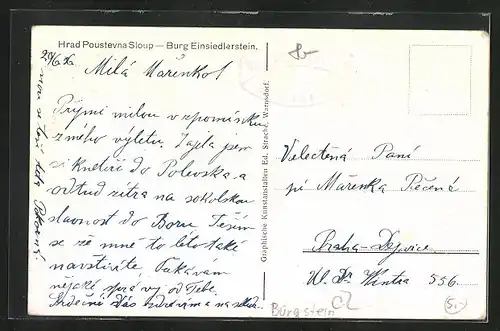 Hrad Poustevna Sloup — Burg Einsiedlerstein.
Milá Mařenko!
Přijmi milou vzpomínku
z mého výletu. Zajela jsem
si k netiři do Polevska a
odtud zítra na sokolskou
slavnost do Boru. Těším
se že mně to léto také
navštívíte, čekávám
nejaké zprávy od Tebe.
Srdečně Vás
Graphische Kunstanstalten Ed. Strache, Warnsdorf.
Velectěná Paní
pí Mařenka Pěčená
Praha-Dejvice
Ul. Dr Wintra 556.
Bürgstein
CZ
5,-